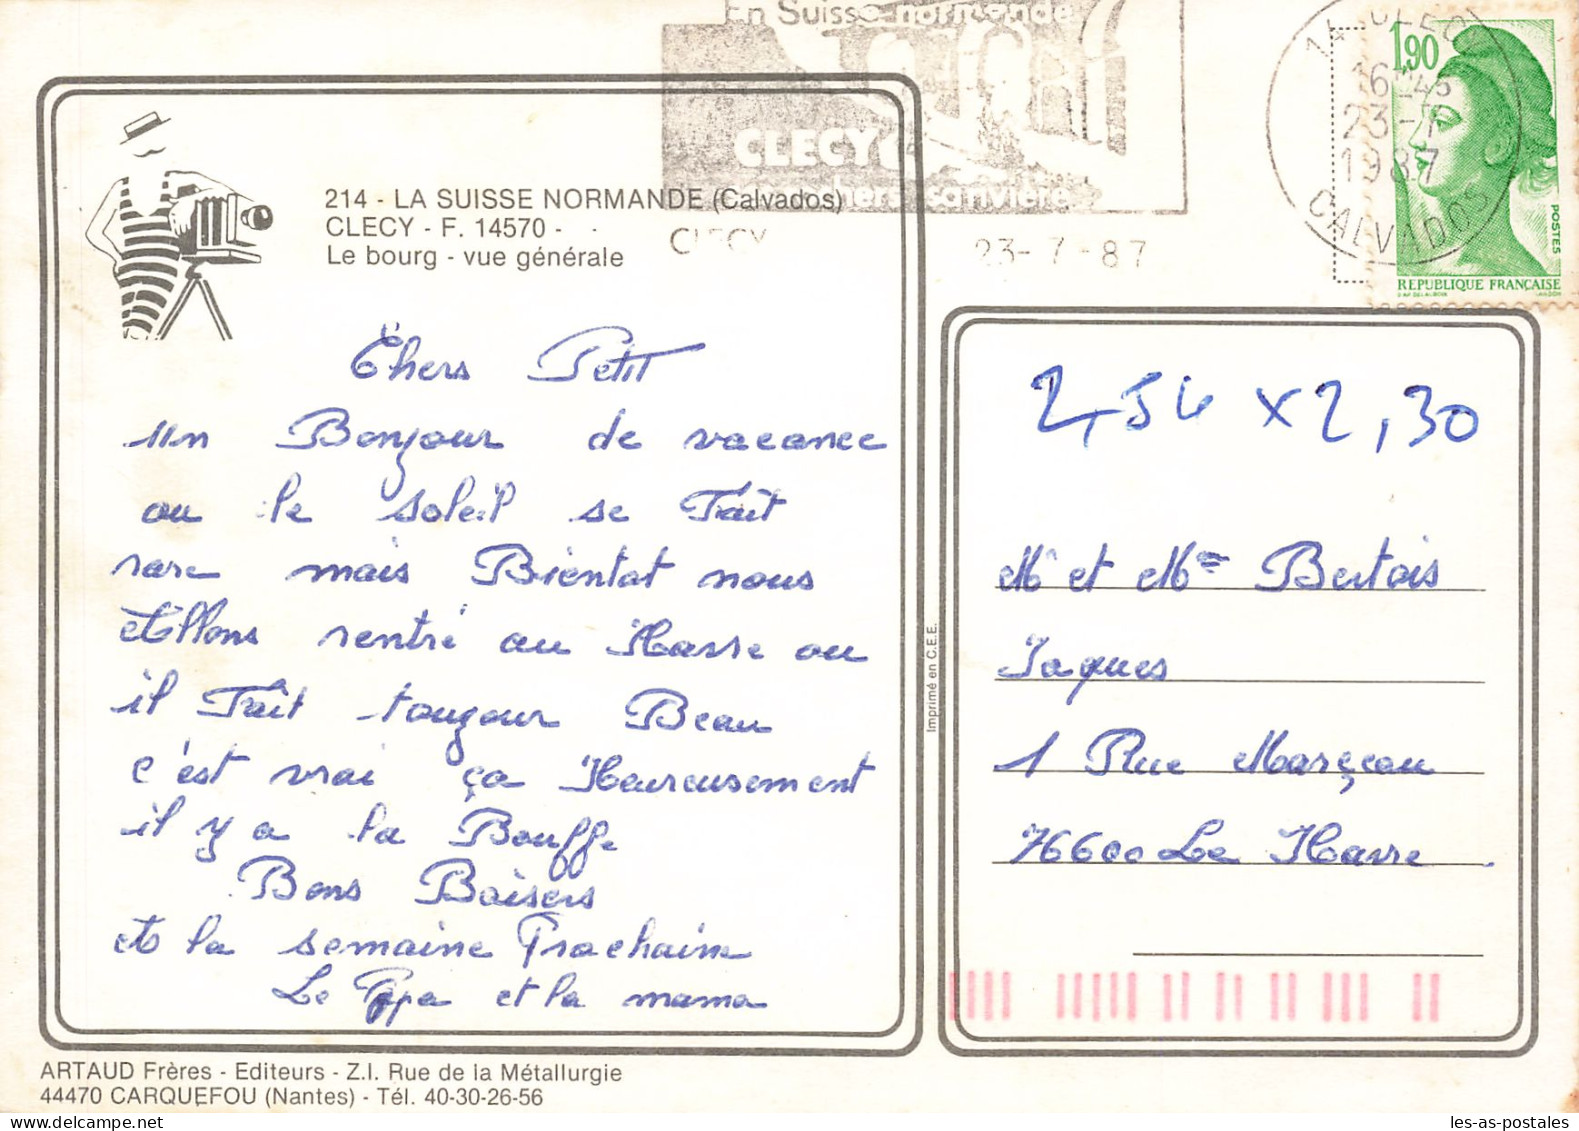 En Suisse normande
CLECY
CLECY
23-7-87
14 CLECY
16H45
23-7
1987
CALVADOS
1,90
POSTES
REPUBLIQUE FRANÇAISE
214 - LA SUISSE NORMANDE (Calvados)
CLECY - F. 14570 -
Le bourg - vue générale
Chers Petit
un Bonjour de vacance
ou le soleil se Fait
rare mais Bientot nous
Allons rentré au Havre ou
il Fait toujour Beau
c'est vrai ça Heureusement
il y a la Bouffe
Bons Baisers
et a la semaine Prochaine
Le Papa et la mama
Imprimé en C.E.E.
2,54 x 2,30
Mr et Mme Bertois
Jaques
1 Rue Marçeau
76600 Le Havre
ARTAUD Frères - Editeurs - Z.I. Rue de la Métallurgie
44470 CARQUEFOU (Nantes) - Tél. 40-30-26-56
les-as-postales